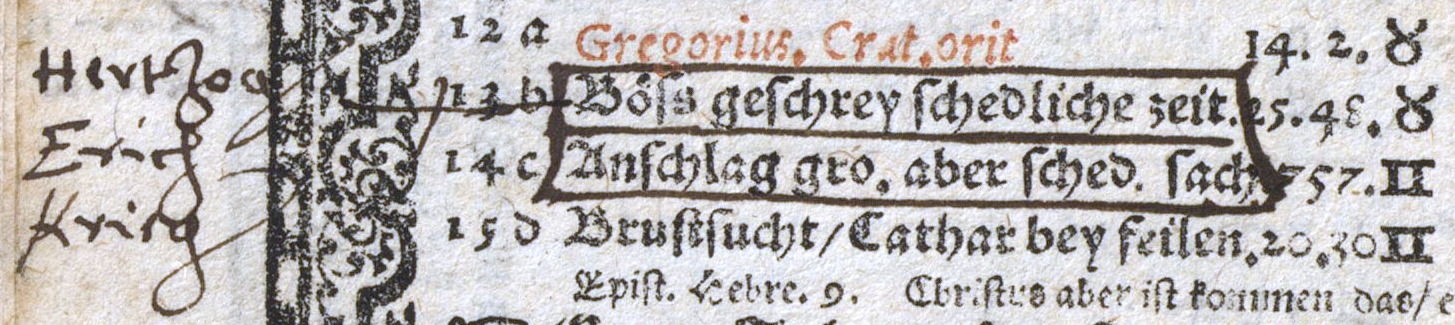 Hertzog
Erich
Krieg
12 a Gregorius, Crat. orit 14. 2. ♉
13 b Böſs geſchrey ſchedliche zeit. 25. 48. ♉
14 c Anſchlag gro. aber ſched. ſach, 757. ♊
15 d Bruſtſucht/ Cathar bey feilen. 20. 30 ♊
Epiſt. Hebre. 9. Chriſtus aber iſt kommen das/